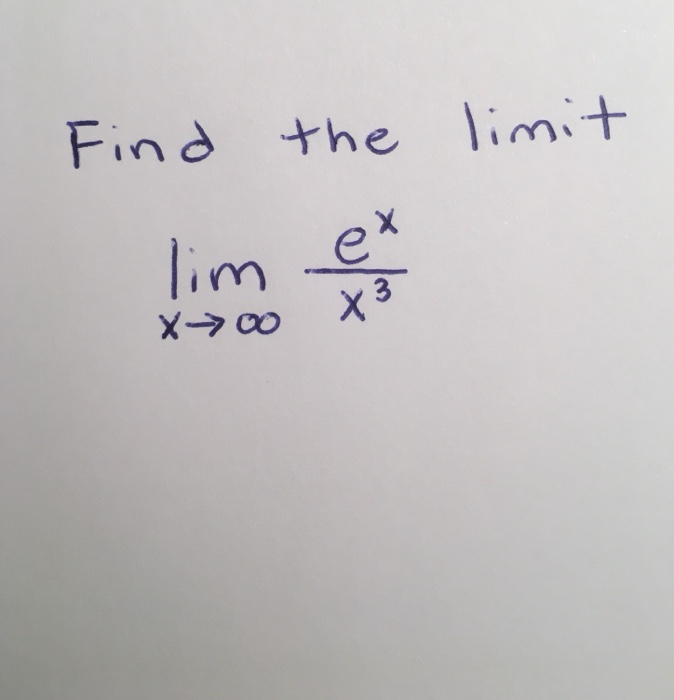 Find the limit
lim x→∞ e^x / x^3